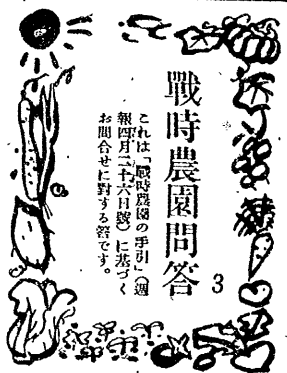 戰時農園問答
3
これは「戰時農園の手引」（週
報四月二十六日號）に基づく
お問合せに對する答です。